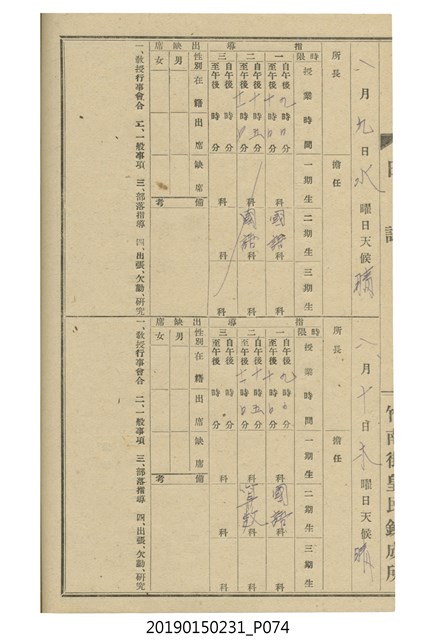 八月九日水曜日天候晴
所長 擔任
指導
時限 授業時間 一期生 二期生 三期生
一 自午後 時 分 至午後 時 分 科 國語科 科
二 自午後 時 分 至午後 時 分 科 國語科 科
三 自午後 時 分 至午後 時 分 科 科 科
出缺席
性別 在籍 出席 缺席 備考
男
女
一、教授行事會合 二、一般事項 三、部落指導 四、出張、欠勤、研究
八月十日木曜日天候晴
所長 擔任
指導
時限 授業時間 一期生 二期生 三期生
一 自午後 時 分 至午後 時 分 科 國語科 科
二 自午後 時 分 至午後 時 分 科 算数科 科
三 自午後 時 分 至午後 時 分 科 科 科
出缺席
性別 在籍 出席 缺席 備考
男
女
一、教授行事會合 二、一般事項 三、部落指導 四、出張、欠勤、研究
竹南街皇民鍊成所
20190150231_P074